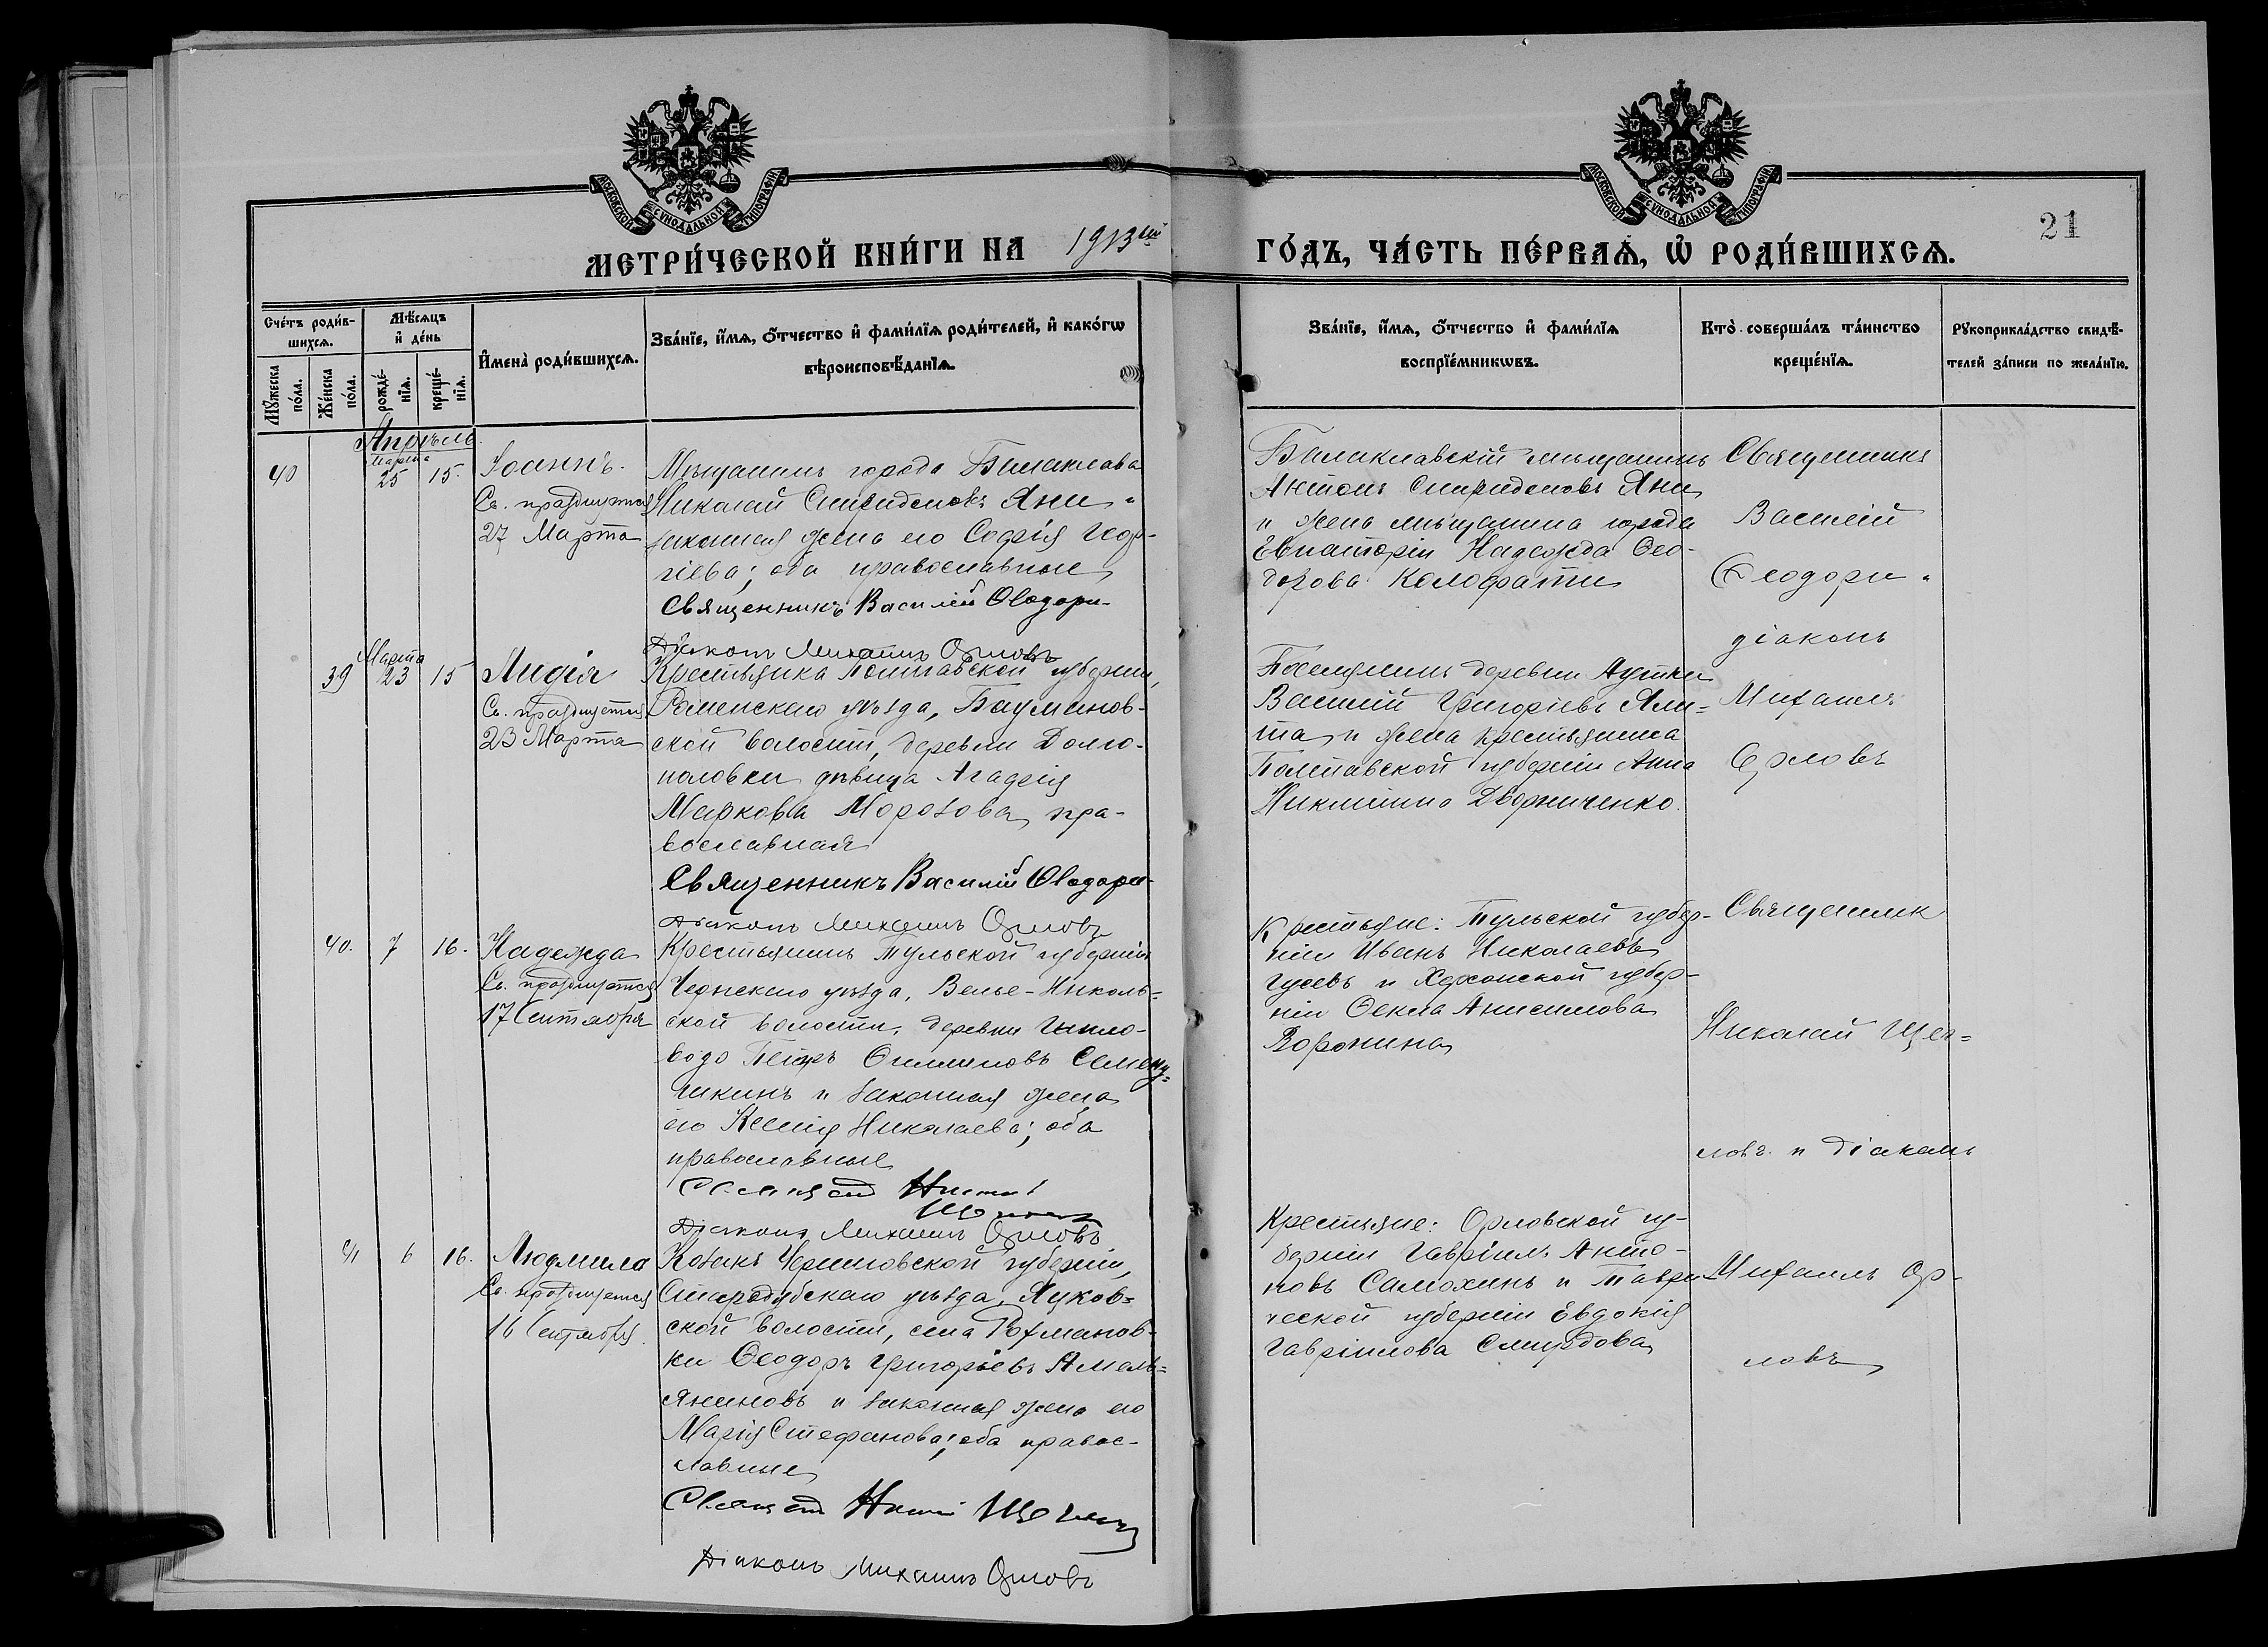 МОСКОВСКОЙ СѴНОДАЛЬНОЙ ТИПОГРАФІИ
МОСКОВСКОЙ СѴНОДАЛЬНОЙ ТИПОГРАФІИ
21
МЕТРИ́ЧЕСКОЙ КНИ́ГИ НА 1913ый ГО́ДЪ, ЧА́СТЬ ПЕ́РВАѦ, Ѡ҆ РОДИ́ВШИХСѦ.
Сче́тъ роди́в-
шихсѧ.
Мꙋ́жеска по́ла.
Же́нска по́ла.
Мѣ́сѧцъ
и҆ де́нь
рожде́-
нїѧ.
креще́-
нїѧ.
И҆мена̀ роди́вшихсѧ.
Зва́нїе, и҆́мѧ, ѻ҆́тчество и҆ фами́лїѧ роди́телей, и҆ како́гѡ
вѣроисповѣ́данїѧ.
Зва́нїе, и҆́мѧ, ѻ҆́тчество и҆ фами́лїѧ
воспрїе́мникѡвъ.
Кто̀ соверша́лъ та́инство
креще́нїѧ.
Рꙋкоприкла́дство свидѣ́-
телей за́писи по жела́нїю.
Апрѣль
40
Марта
25
15.
Іоаннъ.
Св. празднуется
27 Марта
Мѣщанинъ города Балаклава
Николай Спиридоновъ Яни-
законная жена его Софія Геор-
гіева; оба православные
Священникъ Василій Ѳеодори-
Діаконъ Михаилъ Орловъ
Балаклавскій мѣщанинъ
Антонъ Спиридоновъ Яни
и жена мѣщанина города
Евпаторіи Надежда Ѳео-
дорова Колофати
Священникъ
Василій
Ѳеодори-
діаконъ
Михаилъ
Орловъ
39
Марта
23
15
Лидія
Св. празднуется
23 Марта
Крестьянка Полтавской губерніи,
Роменскаго уѣзда, Бацманов-
ской волости, деревни Долго-
половки дѣвица Агафія
Маркова Морозова, пра-
вославная
Священникъ Василій Ѳеодори-
Діаконъ Михаилъ Орловъ
Поселянинъ деревни Аутки
Василій Григорьевъ Али-
та и жена крестьянина
Полтавской губерніи Анна
Никитина Дворниченко.
40.
7
16.
Надежда
Св. празднуется
17 Сентября
Крестьянинъ Тульской губерніи
Чернскаго уѣзда, Велье-Николь-
ской волости, деревни
Петръ Филипповъ Семени-
чикинъ и законная жена
его Ксенія Николаева; оба
православные
Діаконъ Михаилъ Орловъ
Крестьяне: Тульской губер-
ніи Иванъ Николаевъ
Гусевъ и Херсонской губер-
ніи Ѳекла Анисимова
Воронина
Священникъ
Николай Щег-
ловъ и діаконъ
Михаилъ Ор-
ловъ
41
6
16.
Людмила
Св. празднуется
16 Сентября.
Козакъ Черниговской губерніи,
Стародубскаго уѣзда, Лужков-
ской волости, села Рохманов-
ки Ѳеодоръ Григорьевъ Амель-
яненовъ и законная жена его
Марія Стефанова; оба правос-
лавные
Діаконъ Михаилъ Орловъ
Крестьяне: Орловской гу-
берніи Гавріилъ Анто-
новъ Самохинъ и Таври-
ческой губерніи Евдокія
Гавріилова Смурдова